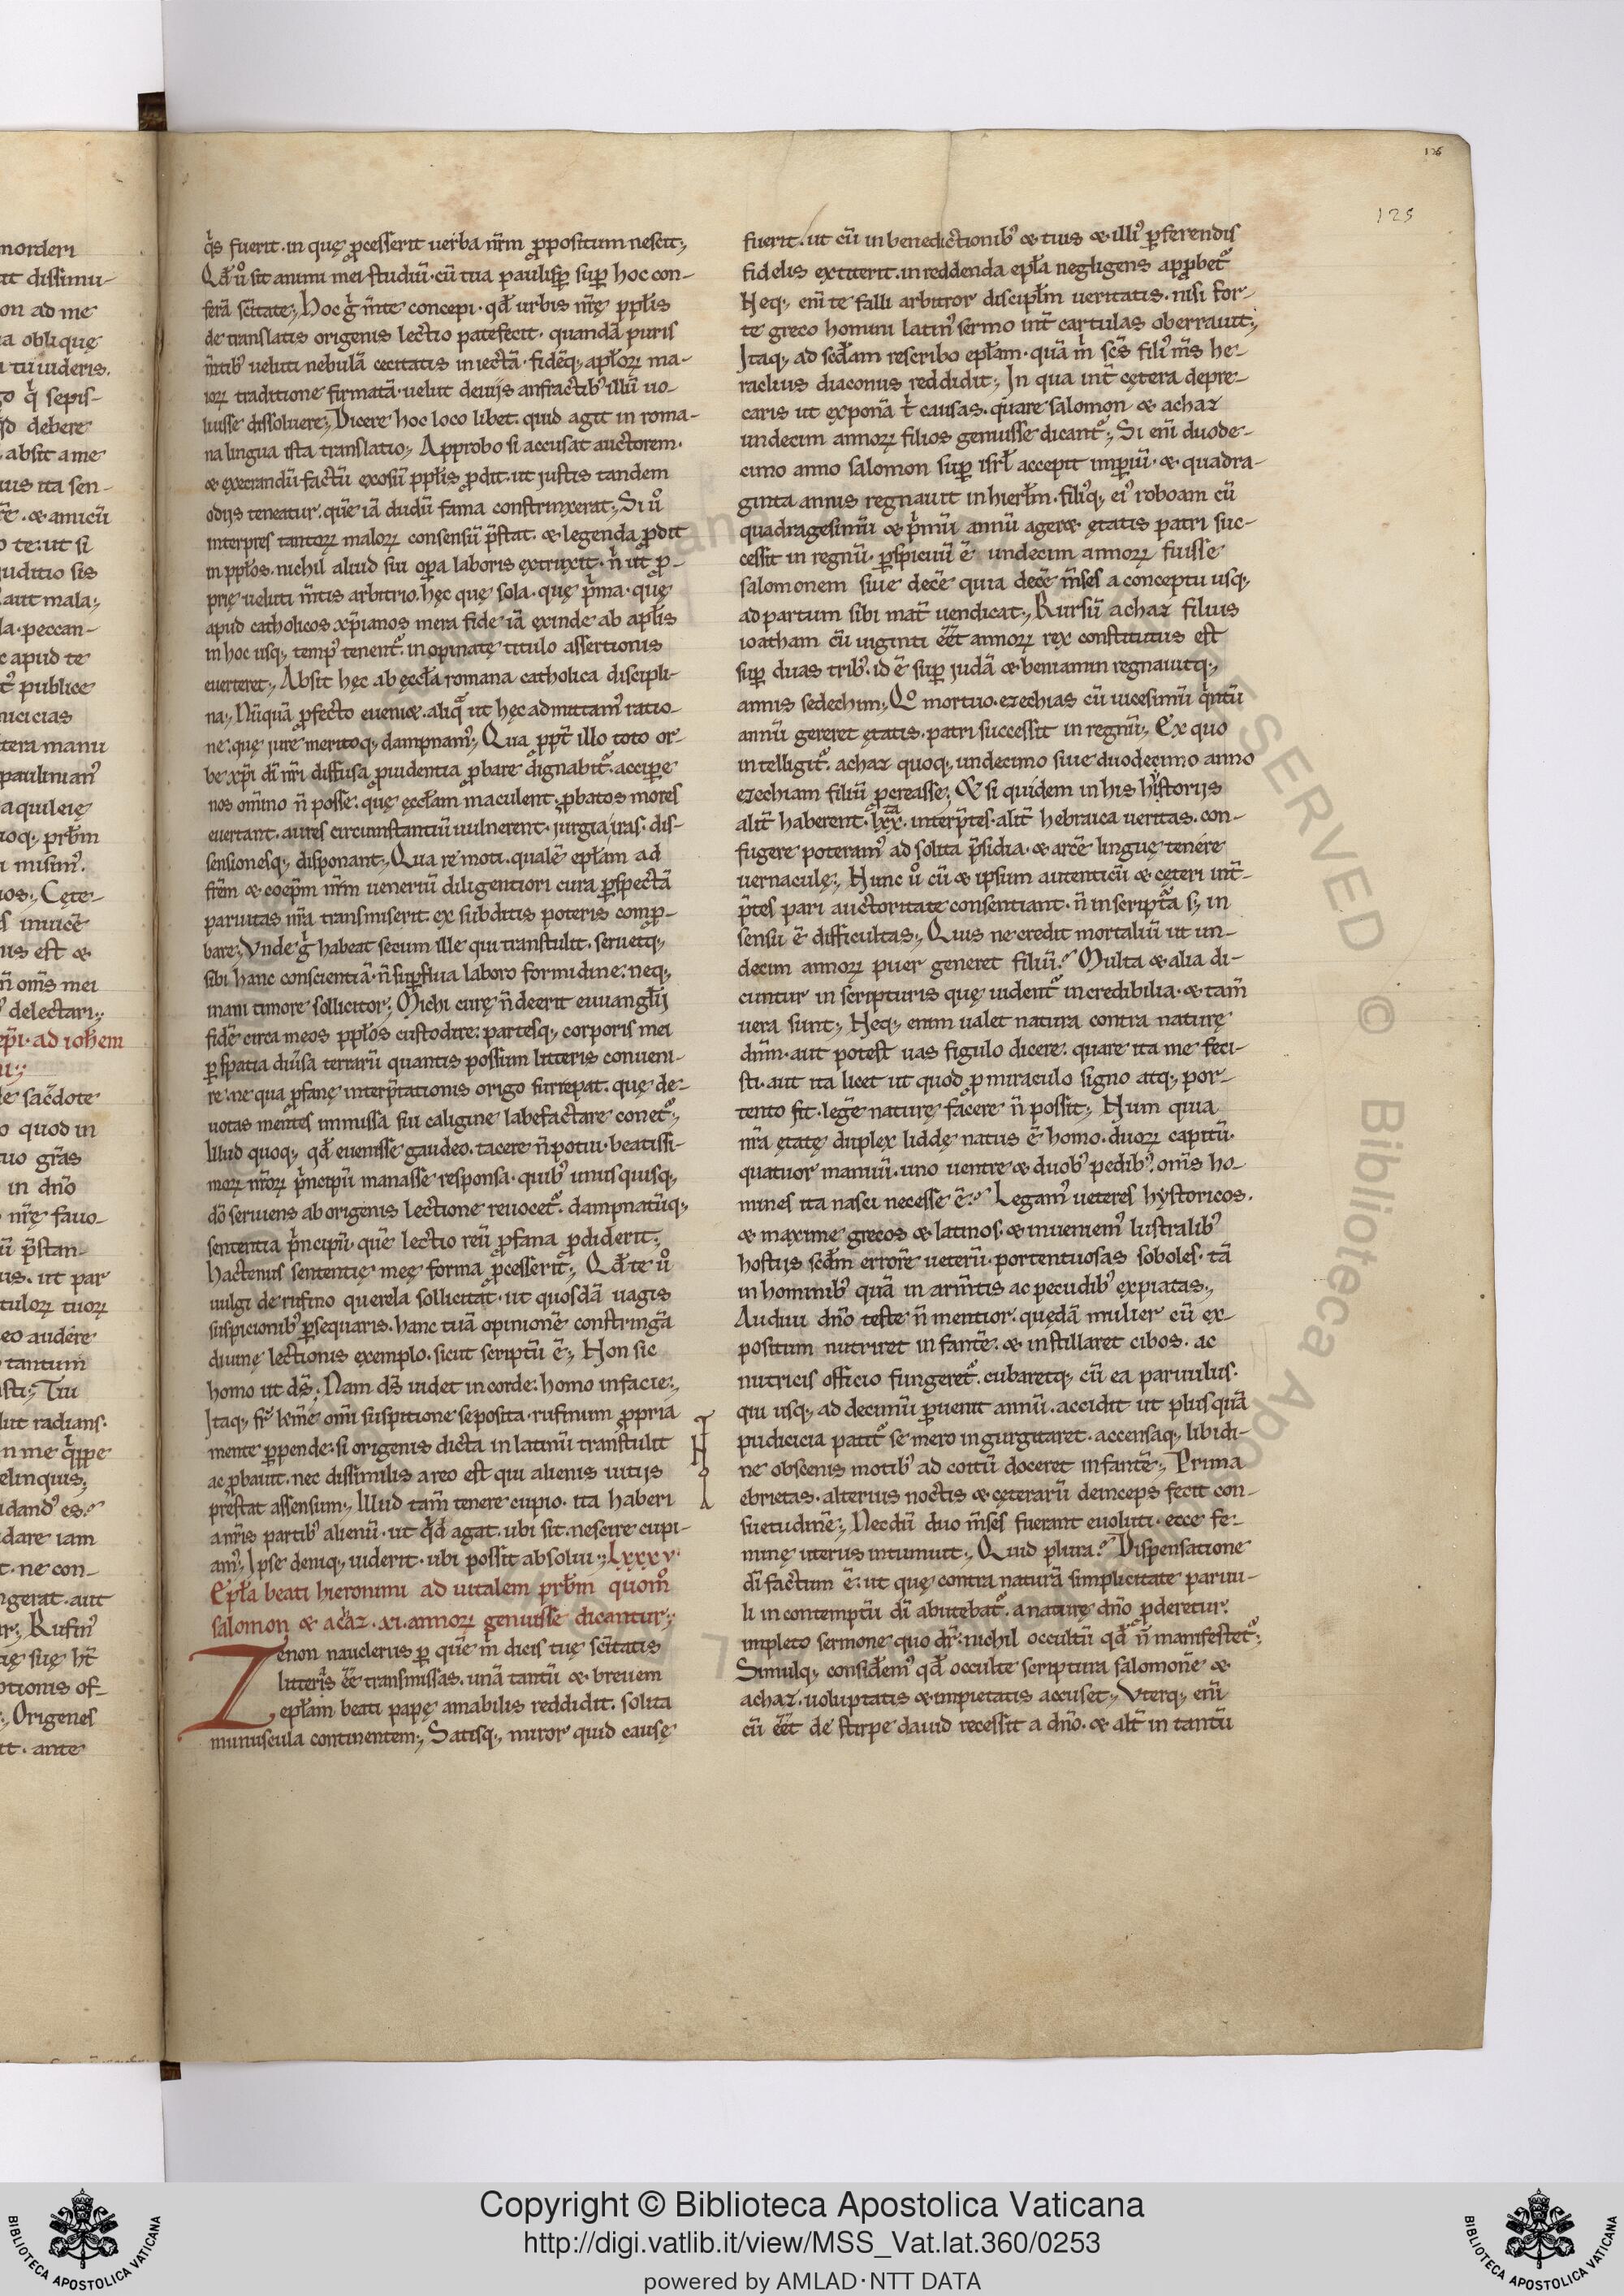 norderi
ut dissimu-
on ad me
a oblique
tu uideris.
go q sepis-
sd debere
absit a me
uis ita sen-
re. & amicu
o te: ut si
uditio sis
aut mala;
la. peccan-
c apud te
publice
nicicias
tera manu
paulinian᾽
aquileię
uoq; prƀm
misim᾽.
uos; Cęte-
s inuicē
us est &
n̄ om̄s mei
delectari;
ep̄i. ad ioħem
le sac̄dote
o quod in
uo gr̄as
in dn̄o
nr̄ę fauo-
ū p̄stan-
us. ut par
tuloꝝ tuoꝝ
eo audere
tantum
sti; Tu
lut radians.
n me qͥppe
elinquis;
idand᾽ es?
dare iam
t. ne con-
ngerat. aut
ur; Rufin᾽
ię suę
otionis of-
; Origenes
tt. ante
126
125
qͥs fuerit. in quę ꝓcesserit uerba nr̄m ꝓpositum nescit;
Qđ u͛ sit animi mei studiū. cū tua paulisꝑ suꝑ hoc con-
ferā sc̄itate; Hoc gͥ m̄te concepi. qđ urbis nr̄ę ppl̄is
de translatis origenis lectio patefecit. quandā puris
m̄tib᾽ ueluti nebulā cecitatis iniectā. fidēq; apl̄oꝝ ma-
ioꝝ traditione firmatā. uelut deuijs anfractib᾽ illū uo-
luisse dissoluere; Dicere hoc loco libet. quid agit in roma-
na lingua ista translatio; Approbo si accusat auctorem.
& execrandū factū exosū ppl̄is ꝓdit. ut iustis tandem
odijs teneatur. quē iā dudū fama constrinxerat; Si u͛
interpres tantoꝝ maloꝝ consensū p̄stat. & legenda ꝓdit
in ppl̄os. nichil aliud sui oꝑa laboris extruxit. nͥ ut ꝓ-
prię ueluti m̄tis arbitrio. hęc quę sola. quę pͥma. quę
apud catholicos xp̄ianos mera fide iā exinde ab apl̄is
in hoc usq; temp᾽ tenent᷑. inopinatę titulo assertionis
euerteret; Absit hęc ab ęccl̄a romana catholica discipli-
na; Nūquā ꝓfecto eueniet. aliqͣ ut hęc admittam᾽ ratio-
ne. quę iure meritoq; dampnam᾽; Qua ꝓpt̄ illo toto or-
be xp̄i dī nr̄i diffusa ꝓuidentia ꝓbare dignabit᷑. acciꝑe
nos om̄ino n̄ posse. quę ęccl̄am maculent. ꝓbatos mores
euertant. aures circumstantiū uulnerent. iurgia iras. dis-
sensionesq; disponant; Qua re moti. qualē epl̄am ad
fr̄em & coep̄m nr̄m ueneriū diligentiori cura ꝑspectā
paruitas nr̄a transmiserit. ex subditis poteris comꝓ-
bare; Vnde gͥ habeat secum ille qui transtulit. seruetq;
sibi hanc conscientiā. n̄ suꝑflua laboro formidine. neq;
inani timore sollicitor; Michi curę n̄ deerit euuangl̄ij
fidē circa meos ppl̄os custodire. partesq; corporis mei
ꝑ spatia diūsa terrarū quantis possum litteris conueni-
re. ne qua ꝓfanę interp̄tationis origo surrepat. quę de-
uotas mentes immissa sui caligine labefactare conet᷑;
Illud quoq; qđ euenisse gaudeo. tacere n̄ potui. beatissi-
moꝝ nr̄oꝝ pͥncipū manasse responsa. quib᾽ unusquisq;
dō seruiens ab origenis lectione reuocet᷑. dampnatūq;
sententia pͥncipū. quē lectio reū ꝓfana ꝓdiderit;
hactenus sententię meę forma ꝓcesserit; Qđ te u͛
uulgi de rufino querela sollicitat. ut quosdā uagis
suspicionib᾽ ꝑsequaris. hanc tuā opinionē constringā
diuinę lectionis exemplo. sicut scriptū ē; Non sic
homo ut ds̄; Nam ds̄ uidet in corde. homo in facie;
Itaq; fr̄ km̄e om̄i suspitione seposita. rufinum ꝓpria
mente ꝑpende. si origenis dicta in latinū transtulit
ac ꝓbauit. nec dissimilis a reo est qui alienis uitijs
prestat assensum; Illud tam̄ tenere cupio. ita haberi
a nr̄is partib᾽ alienū. ut qͥd agat. ubi sit. nescire cupi-
am᾽; Ipse deniq; uiderit. ubi possit absolui; Lxxxv.
Epl̄a beati hieronimi ad uitalem prƀm quom͛
salomon & achaz .xi. annoꝝ genuisse dicantur;
Zenon nauclerus ꝑ quē m̄ dicis tuę sc̄itatis
litter̄s ēē transmissas. unā tantū & breuem
epl̄am beati papę amabilis reddidit. solita
munuscula continentem; Satisq; miror quid causę
fuerit. ut cū in benedictionib᾽ & tuis & illi᾽ ꝑferendis
fidelis extiterit. in reddenda epl̄a negligens apꝓbet᷑
Neq; eni te falli arbitror discipl̄m ueritatis. nisi for-
te greco homini latin᾽ sermo int̄ cartulas oberrauit;
Itaq; ad scđam rescribo epl̄am. quā mͥ sc̄s fili᾽ m̄s he-
raclius diaconus reddidit; In qua int̄ cętera depre-
caris ut exponā tͥ causas. quare salomon & achaz
undecim annoꝝ filios genuisse dicant᷑; Si eni duode-
cimo anno salomon suꝑ isrl̄ accepit imꝑiū. & quadra-
ginta annis regnauit in hierl̄m. fili᾽q; ei᾽ roboam cū
quadragesimū & pͥmū annū ageret ętatis patri suc-
cessit in regnū. ꝑspicuū ē undecim annoꝝ fuisse
salomonem siue decē quia decē m̄ses a conceptu usq;
ad partum sibi mat̄ uendicat; Rursū achaz filius
ioatham cū uiginti eēt annoꝝ rex constitutus est
suꝑ duas trib᾽. id ē suꝑ iudā & beniamin regnauitq;
annis sedechim; Qͦ mortuo. ezechias cū uicesimū qͥntū
annū gereret ętatis. patri successit in regnū; Ex quo
intelligit᷑. achaz quoq; undecimo siue duodecimo anno
ezechiam filiū ꝓcreasse; Et si quidem in his hystorijs
alit̄ haberent᷑ lxx̄. interp̄tes. alit̄ hebraica ueritas. con-
fugere poteram᾽ ad solita p̄sidia. & arcē linguę tenere
uernaculę; Nunc u͛ cū & ipsum autenticū & cęteri int̄-
p̄tes pari auctoritate consentiant. n̄ in scriptͣa s; in
sensu ē difficultas; Quis ne credit mortaliū ut un-
decim annoꝝ puer generet filiū? Multa & alia di-
cuntur in scripturis quę uident᷑ incredibilia. & tam̄
uera sunt; Neq; enim ualet natura contra naturę
dn̄m. aut potest uas figulo dicere. quare ita me feci-
sti. aut ita licet ut quod ꝓ miraculo signo atq; por-
tento fit. legē naturę facere n̄ possit; Num quia
nr̄a ętatę duplex liddę natus ē homo. duoꝝ capitū.
quatuor manuū. uno uentre & duob᾽ pedib᾽. om̄s ho-
mines ita nasci necesse ē? Legam᾽ ueteres hystoricos.
& maxime grecos & latinos. & inueniem᾽ lustralib᾽
hostijs scđm errore ueterū. portentuosas soboles. tā
in hominib᾽ quā in arm̄tis ac pecudib᾽ expiatas;
Audiui dn̄o teste n̄ mentior. quędā mulier cū ex-
positum nutriret infantē. & instillaret cibos. ac
nutricis officio fungeret᷑. cubaretq; cū ea paruulus.
qui usq; ad decimū ꝑuenit annū. accidit ut plus quā
pudicicia patit᷑ se mero ingurgitaret. accensaq; libidi-
ne obscenis motib᾽ ad coitū doceret infantē; Prima
ebrietas. alterius noctis & ceterarū deinceps fecit con-
suetudinē; Necdū duo m̄ses fuerant euoluti. ecce fe-
minę uterus intumuit; Quid plura? Dispensatione
dī factum ē. ut quę contra naturā simplicitate paruu-
li in contemptū dī abutebat᷑. a naturę dn̄o ꝓderetur.
impleto sermone quo dr̄. nichil occultū qđ n̄ manifestet᷑;
Simulq; considem᾽ qđ occulte scriptura salomonē &
achaz. uoluptatis & impietatis accuset; Vterq; eni
cū eēt de stirpe dauid recessit a dn̄o. & alt̄ in tantū
Copyright © Biblioteca Apostolica Vaticana
http://digi.vatlib.it/view/MSS_Vat.lat.360/0253
powered by AMLAD·NTT DATA
BIBLIOTECA APOSTOLICA VATICANA
BIBLIOTECA APOSTOLICA VATICANA